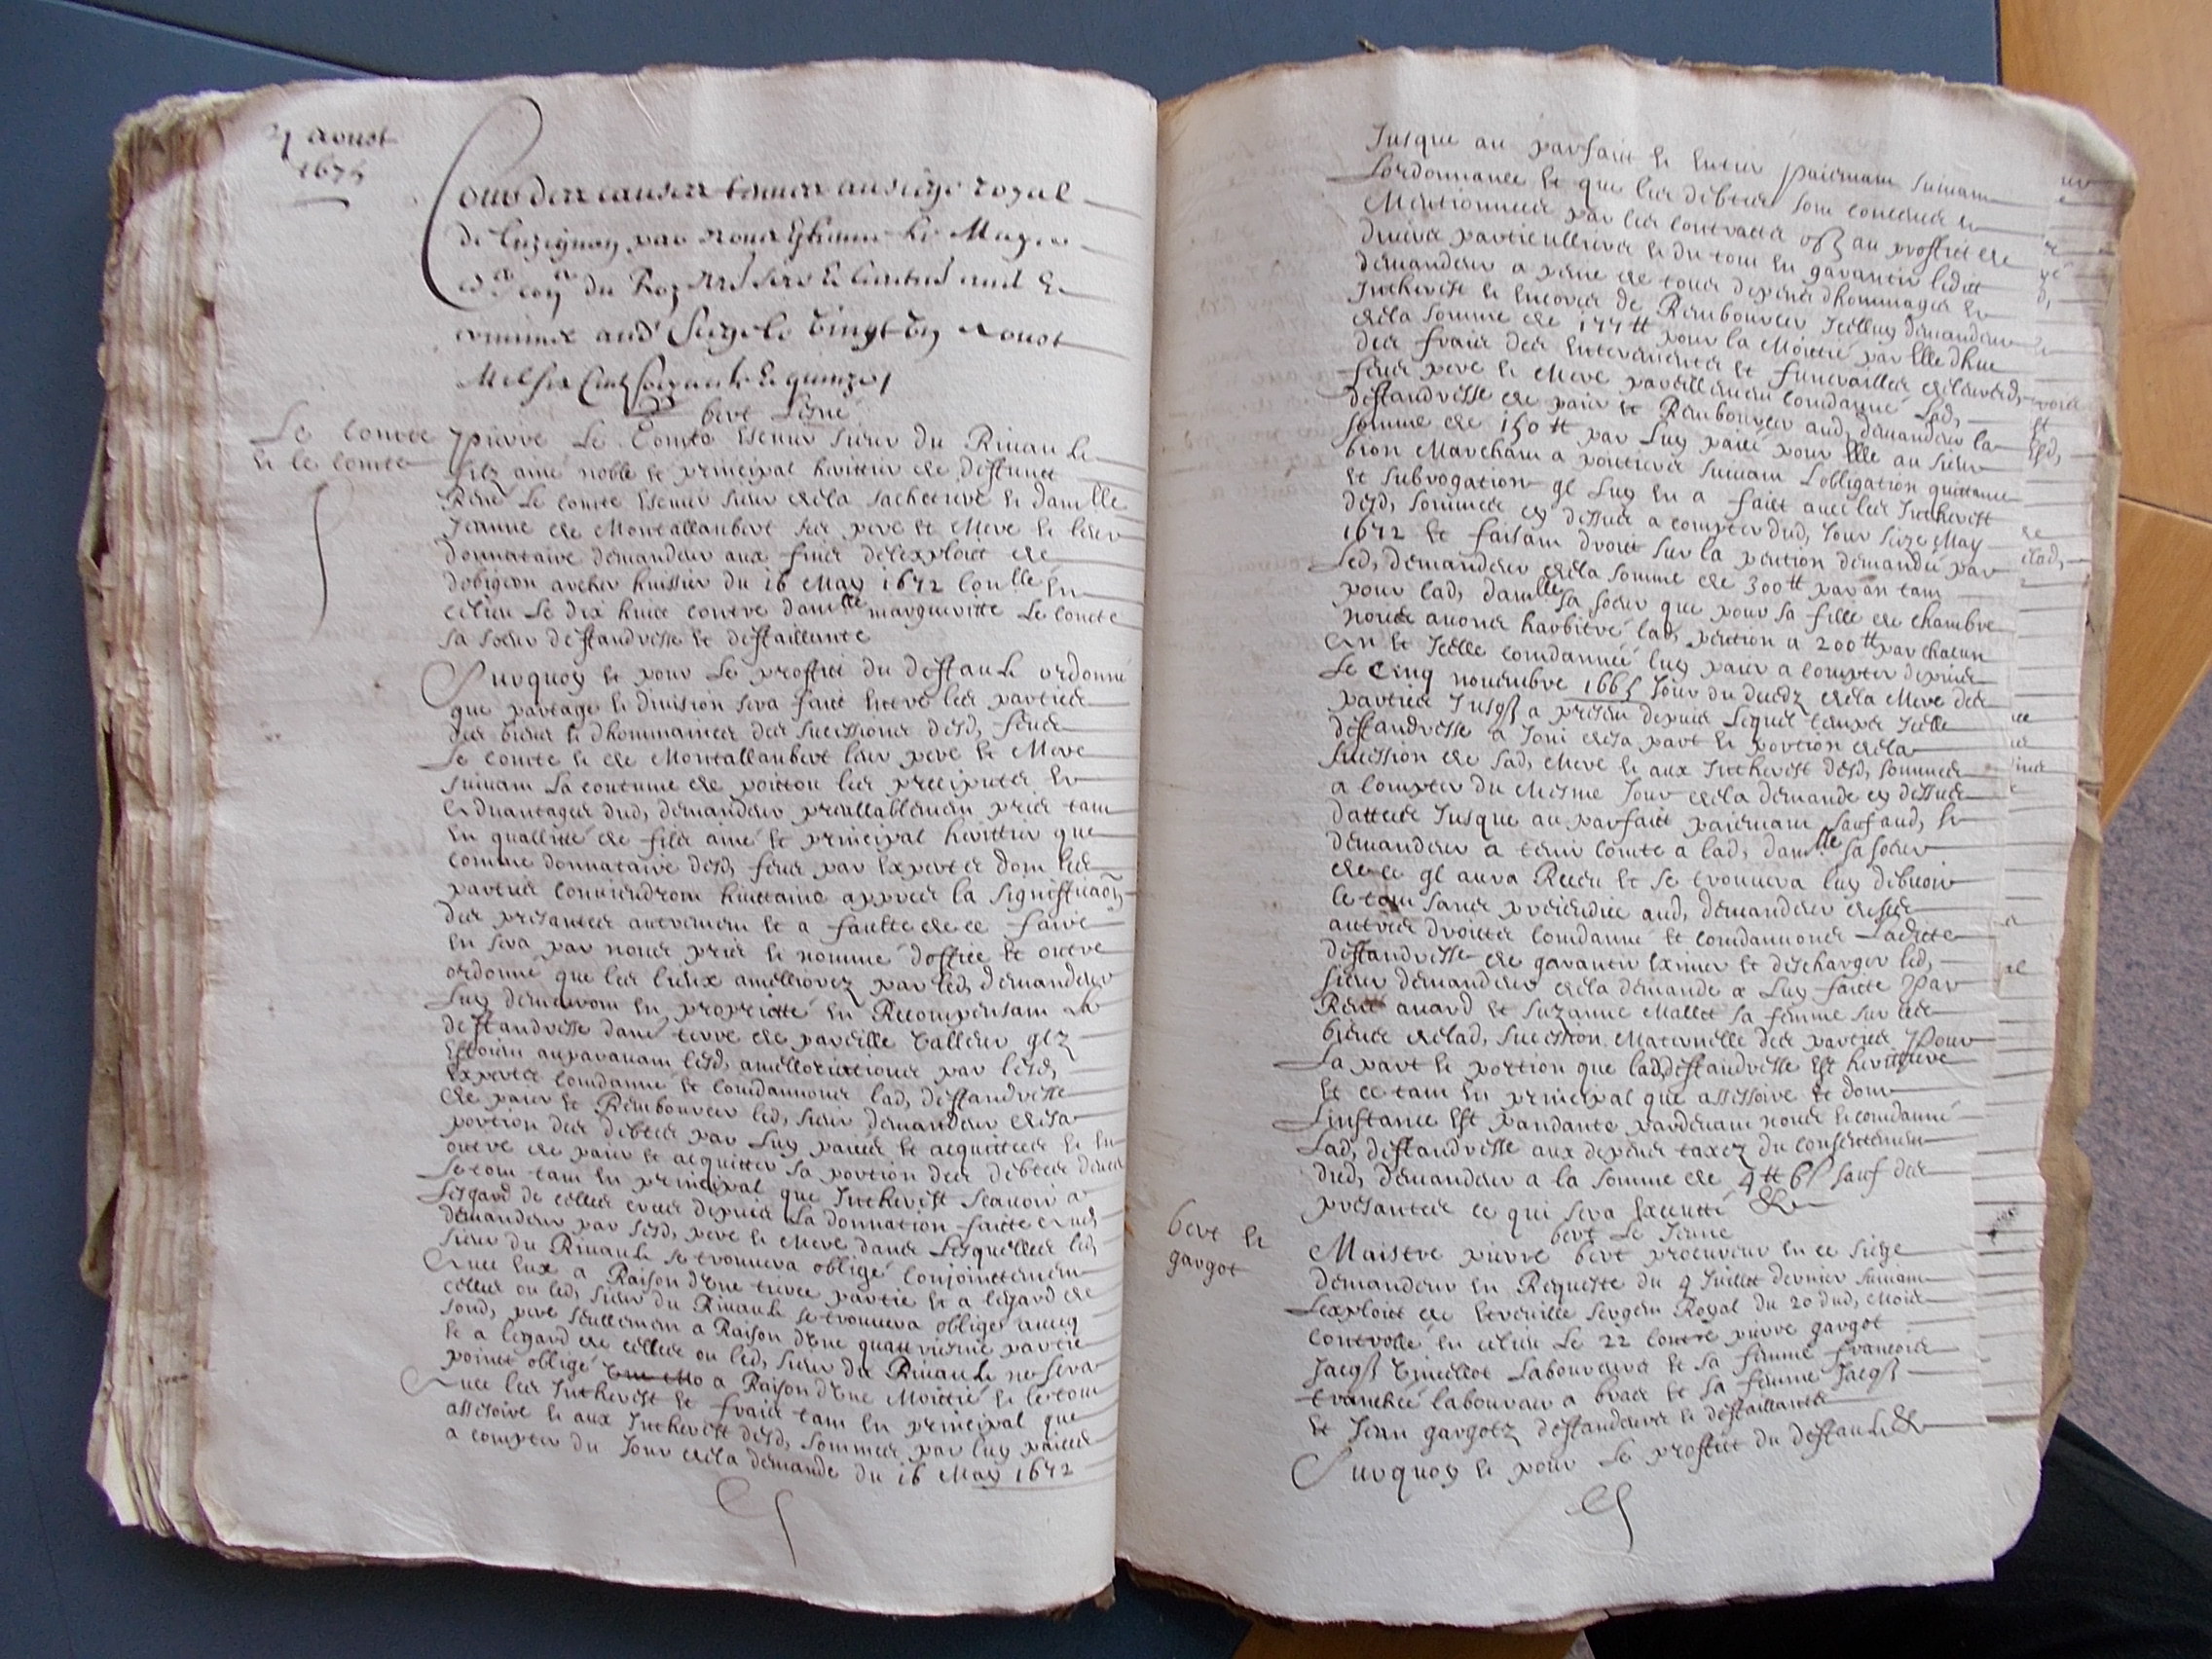 21 aoust
1675
Cour des causes tenues au siege royal
de Luzignan par nous
du Roy
criminel aud. siege le vingt un aoust
Mil six cent soixante et quinze
bert
Le comte
et le comte
pierre Le Comte escuier sieur du Rivault
filz ainé noble et principal herittier de deffunct
René Le comte escuier sieur de la sachetiere et damlle
Jeanne de Montallanbert ses pere et mere et leur
donnataire demandeur aux fins de lexploict de
dobigeon archer huissier du 16 May 1672 conlle en
ce lieu Le dix huict contre damlle margueritte Le comte
sa soeur deffandresse et deffaillante
Surquoy et pour Le proffict du deffault ordonné
que partage et division sera faict entre les parties
des biens et dhommaines des successions desd, feus
Le comte et de Montallanbert leur pere et Mere
suivant La coutume de poittou les preciputs et
advantages dud, demandeur preallablement pris tant
en quallitté de filz ainé et principal herittier que
comme donnataire desd, feus par Experts dont les
parties conviendront huittaine apprès la signiffication
des presantes autrement et a faulte de ce faire
en sera par nous pris et nommé doffice et outre
ordonné que les lieux amelliorez par led, demandeur
Luy demeuront en propriette en Recompensant La
deffandresse dans terre de pareille valleur quilz
estoient auparavant lesd, amelliorations par lesd,
Experts condanné et condannons lad, deffandresse
de paier et Rembourcer led, sieur demandeur de sa
portion des debtes par Luy paiées et acquittées et en
outre de paier et acquitter sa portion des debtes deues
Le tout tant en principal que Intherist scavoir a
lesgard de celles crées depuis La donnation faitte aud
demandeur par sesd, pere et Mere dans Lesquelles led,
sieur du Rivault se trouvera obligé conjoinctement
avec eux a Raison dune tierce partie et a lesgard de
celles ou led, sieur du Rivault se trouvera obligé avecq
sond, pere seullement a Raison dune quatriesme partie
et a lesgard de celles ou led, sieur du Rivault ne sera
poinct obligé a Raison dune Moittié et le tout
avec les Intherist et fraies tant en principal que
assesoire et aux Intherist desd, sommes par luy paiées
a compter du Jour de la demande du 16 May 1672
Jusque au parfaict et entier paiement suivant
Lordonnance et que les debtes sont concues et
Mentionnées par les contracts au proffict des
particulliers et du tout en garantir ledict
demandeur a peine de tous depens dhommages et
Intherist et encores de Rembourcer Icelluy demandeur
de la somme de 177 tt pour la Moittié par Elle dhue
des frais des enterrements et funerailles
feus pere et Mere pareillement condanné Lad,
deffandresse de paier et Rembourcer aud, demandeur la
somme de 150 tt par Luy paiée pour Elle au sieur
bion Marchant a poictiers suivant Lobligation quittance
et subrogation ql Luy en a faict avec les Intherist
desd, sommes cy dessus a compter dud, Jour seize May
1672 et faisant droict sur la pention demandée par
Led, demandeur de la somme de 300 tt par an tant
pour lad, damlle sa soeur que pour sa fille de chambre
nous avons harbitré lad, pention a 200 tt par chacun
an et Icelle condannée luy paier a compter depuis
Le cinq novembre 1665 Jour du deces de la Mere des
parties Jusqs a presant depuis Lequel temps Icelle
deffandresse a Joui de sa part et portion de la
succission de sad, Mere et aux Intherist desd, sommes
a compter du Mesme Jour de la demande cy dessus
dattée Jusque au parfaict paiement sauf aud,
demandeur a tenir comte a lad, damlle sa soeur
de ce ql aura Receu et se trouvera luy debvoir
le tout sans preiudice aud, demandeur de ses
autres droicts condanné et condannons Ladicte
deffandresse de garantir eximer et descharger led,
sieur demandeur de la demande a Luy faicte par
René avard et Suzanne Mallet sa femme sur les
biens de lad, succission Maternelle des parties pour
La part et portion que lad, deffandresse est herittiere
et ce tant en principal que assessoire et dont
Linstance est pandante pardevant nous et condanné
Lad, deffandresse aux depens taxez du consentement
dud, demandeur a la somme de 4 tt 6 s sauf des
presantes ce qui sera executté &
bert Le Jeune
bert et
gargot
Maistre pierre bert procureur en ce siege
demandeur en Requeste du 9 Juillet dernier suivant
Lexploict de sergent Royal du 20 dud, Mois
controllé en ce lieu Le 22 contre pierre gargot
Jacqs Laboureurs et sa femme francois
tranchée laboureur a bras et sa femme Jacqs
et Jean gargotz deffandeurs et deffaillants
Surquoy et pour Le proffict du deffault &